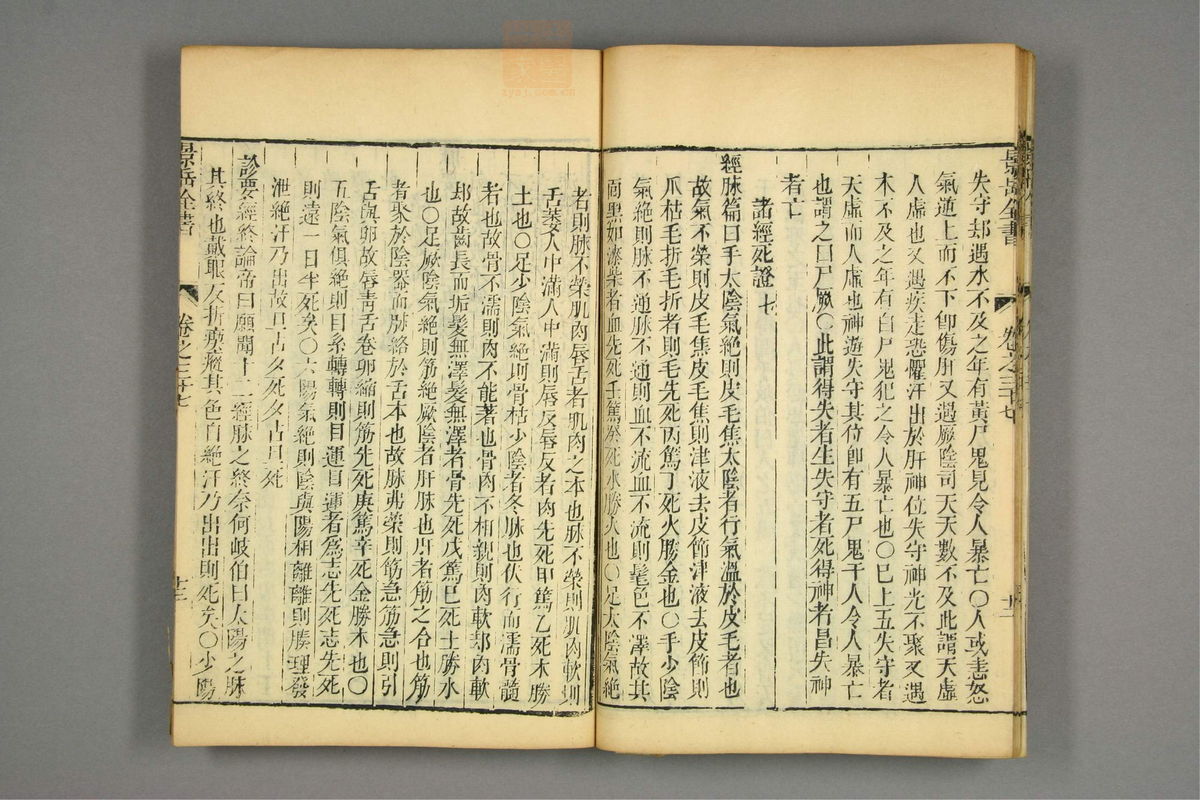 景岳全書
卷之三十七
失守却遇水不及之年有黃尸鬼見令人暴亡〇人或恚怒
氣逆上而不下卽傷肝又遇厥陰司天天數不及此謂天虛
人虛也又遇疾走恐懼汗出於肝神位失守神光不聚又遇
木不及之年有白尸鬼犯之令人暴亡也〇已上五失守者
天虛而人虛也神遊失守其位卽有五尸鬼干人令人暴亡
也謂之曰尸厥〇此謂得失者生失守者死得神者昌失神
者亡
諸經死證 七
經脉篇曰手太陰氣絕則皮毛焦太陰者行氣溫於皮毛者也
故氣不榮則皮毛焦皮毛焦則津液去皮節津液去皮節則
爪枯毛折毛折者則毛先死丙篤丁死火勝金也〇手少陰
氣絕則脉不通脉不通則血不流血不流則髦色不澤故其
面黑如漆柴者血先死壬篤癸死水勝火也〇足太陰氣絕
者則脉不榮肌肉唇舌者肌肉之本也脉不榮則肌肉軟則
舌萎人中滿人中滿則唇反唇反者肉先死甲篤乙死木勝
土也〇足少陰氣絕則骨枯少陰者冬脉也伏行而濡骨髓
者也故骨不濡則肉不能著也骨肉不相親則肉軟却肉軟
却故齒長而垢髮無澤髮無澤者骨先死戊篤巳死土勝水
也〇足厥陰氣絕則筋絕厥陰者肝脉也肝者筋之合也筋
者聚於陰器而脉絡於舌本也故脉弗榮則筋急筋急則引
舌與卵故唇青舌卷卵縮則筋先死庚篤辛死金勝木也〇
五陰氣俱絕則目系轉轉則目運目運者爲志先死志先死
則遠一日半死矣〇六陽氣絕則陰與陽相離離則腠理發
泄絕汗乃出故旦占夕死夕占旦死
診要經終論帝曰願聞十二經脉之終奈何岐伯曰太陽之脉
其終也戴眼反折瘈瘲其色白絕汗乃出出則死矣〇少陽
景岳全書
卷之三十七